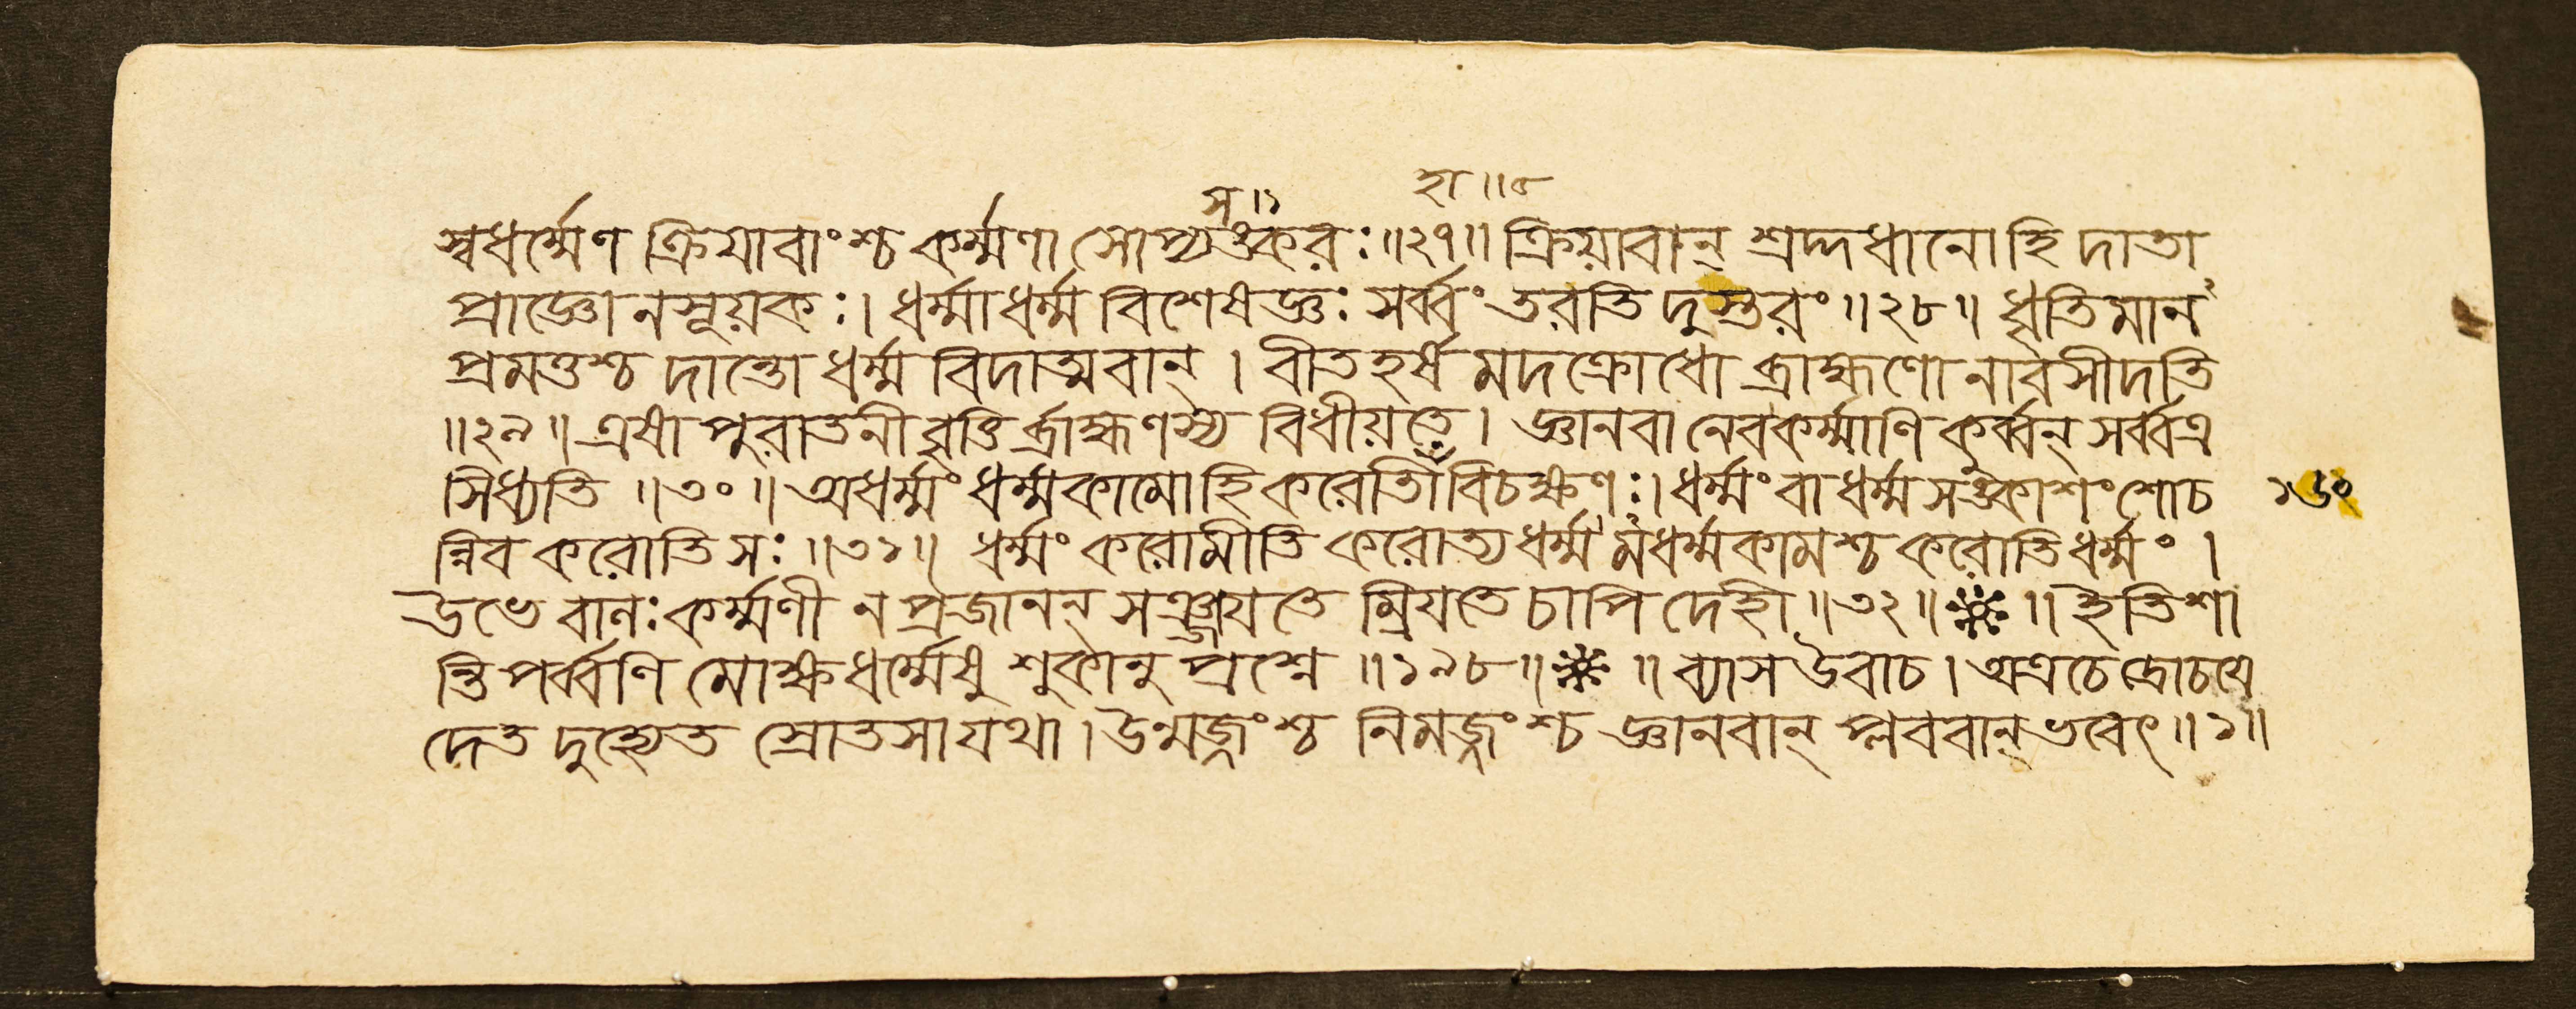 স॥১ হা॥৫
স্বধর্ম্মেণ ক্রিয়াবাংশ্চ কর্ম্মণা সোপ্যসঙ্করঃ॥২৭॥ ক্রিয়াবান্ শ্রদ্দধানোহি দাতা
প্রাজ্ঞোনসূয়কঃ। ধর্ম্মাধর্ম্ম বিশেষজ্ঞঃ সর্ব্বং তরতি দুস্তরং॥২৮॥ ধৃতিমান
প্রমত্তশ্চ দান্তো ধর্ম্ম বিদাত্মবান্। বীতহর্ষ মদক্রোধো ব্রাহ্মণো নাবসীদতি
॥২৯॥ এষা পুরাতনী বৃত্তি র্ব্রাহ্মণস্য বিধীয়তে। জ্ঞানবা নেবকর্ম্মাণি কুর্ব্বন্ সর্ব্বত্র
সিধ্যতি॥৩০॥ অধর্ম্মং ধর্ম্মকামোহি করোতি বিচক্ষণঃ। ধর্ম্মং বা ধর্ম্ম সঙ্কাশং শোচ ১৬০
ন্নিব করোতি সঃ॥৩১॥ ধর্ম্মং করোমীতি করোত্য ধর্ম্ম মধর্ম্মকামশ্চ করোতি ধর্ম্মং।
উভে বানঃ কর্ম্মণী নপ্রজানন্ সঞ্জায়তে ম্রিয়তে চাপি দেহী॥৩২॥ ॥ ইতিশা
ন্তি পর্ব্বণি মোক্ষধর্ম্মেষু শুকানু প্রশ্নে॥১৯৮॥ ॥ ব্যাস উবাচ। অত্রচে দ্রোচয়ে
দেত দুহ্যেত স্রোতসা যথা। উন্মজ্জংশ্চ নিমজ্জংশ্চ জ্ঞানবান্ প্লববান্ ভবেৎ॥১॥